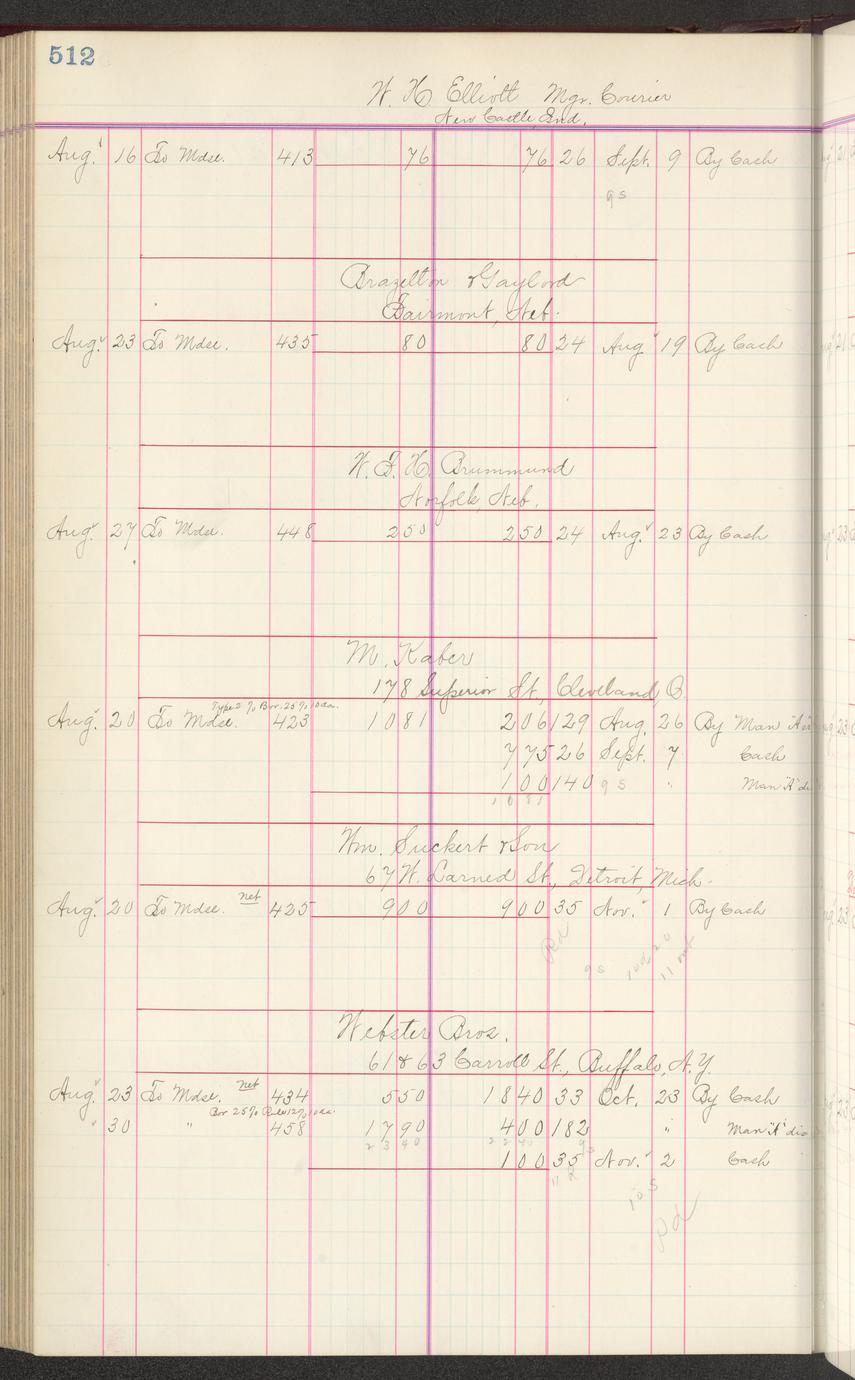 512
W. H. Elliott Mgr. Courier
New Castle, Ind.
Aug. 16 To Mdse. 413 76 76 26 Sept. 9 By Cash
9 s
Brazelton & Gaylord
Fairmont, Neb.
Aug. 23 To Mdse. 435 80 80 24 Aug 19 By Cash
W. F. H. Brummund
Norfolk, Neb.
Aug. 27 To Mdse. 448 250 250 24 Aug. 23 By Cash
M. Kaber
178 Superior St., Cleveland, O.
Type 2% Bor. 25% 10 da.
Aug. 20 To Mdse. 423 1081 206 129 Aug. 26 By Man "A"
775 26 Sept. 7 Cash
100 140 9 s " Man "A" di
1081
Wm. Suckert & Son
67 W. Larned St., Detroit, Mich.
Aug. 20 To Mdse. net 425 900 900 35 Nov. 1 By Cash
Rd
9 s
Webster Bros.
61 & 63 Carroll St., Buffalo, N.Y.
Aug. 23 To Mdse. net 434 550 1840 33 Oct. 23 By Cash
Bor 25% 10 da.
" 30 " 458 1790 400 182 " Man "A" dis
2340 2240 9 s
100 35 Nov. 2 Cash
10 s
Pd